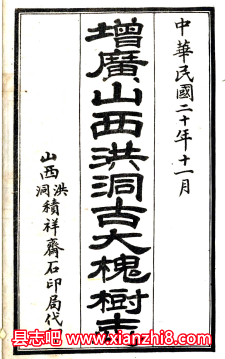 中華民國二十年十一月
增廣山西洪洞古大槐樹志
山西洪洞積祥齋石印局代印
县志吧 www.xianzhi8.com